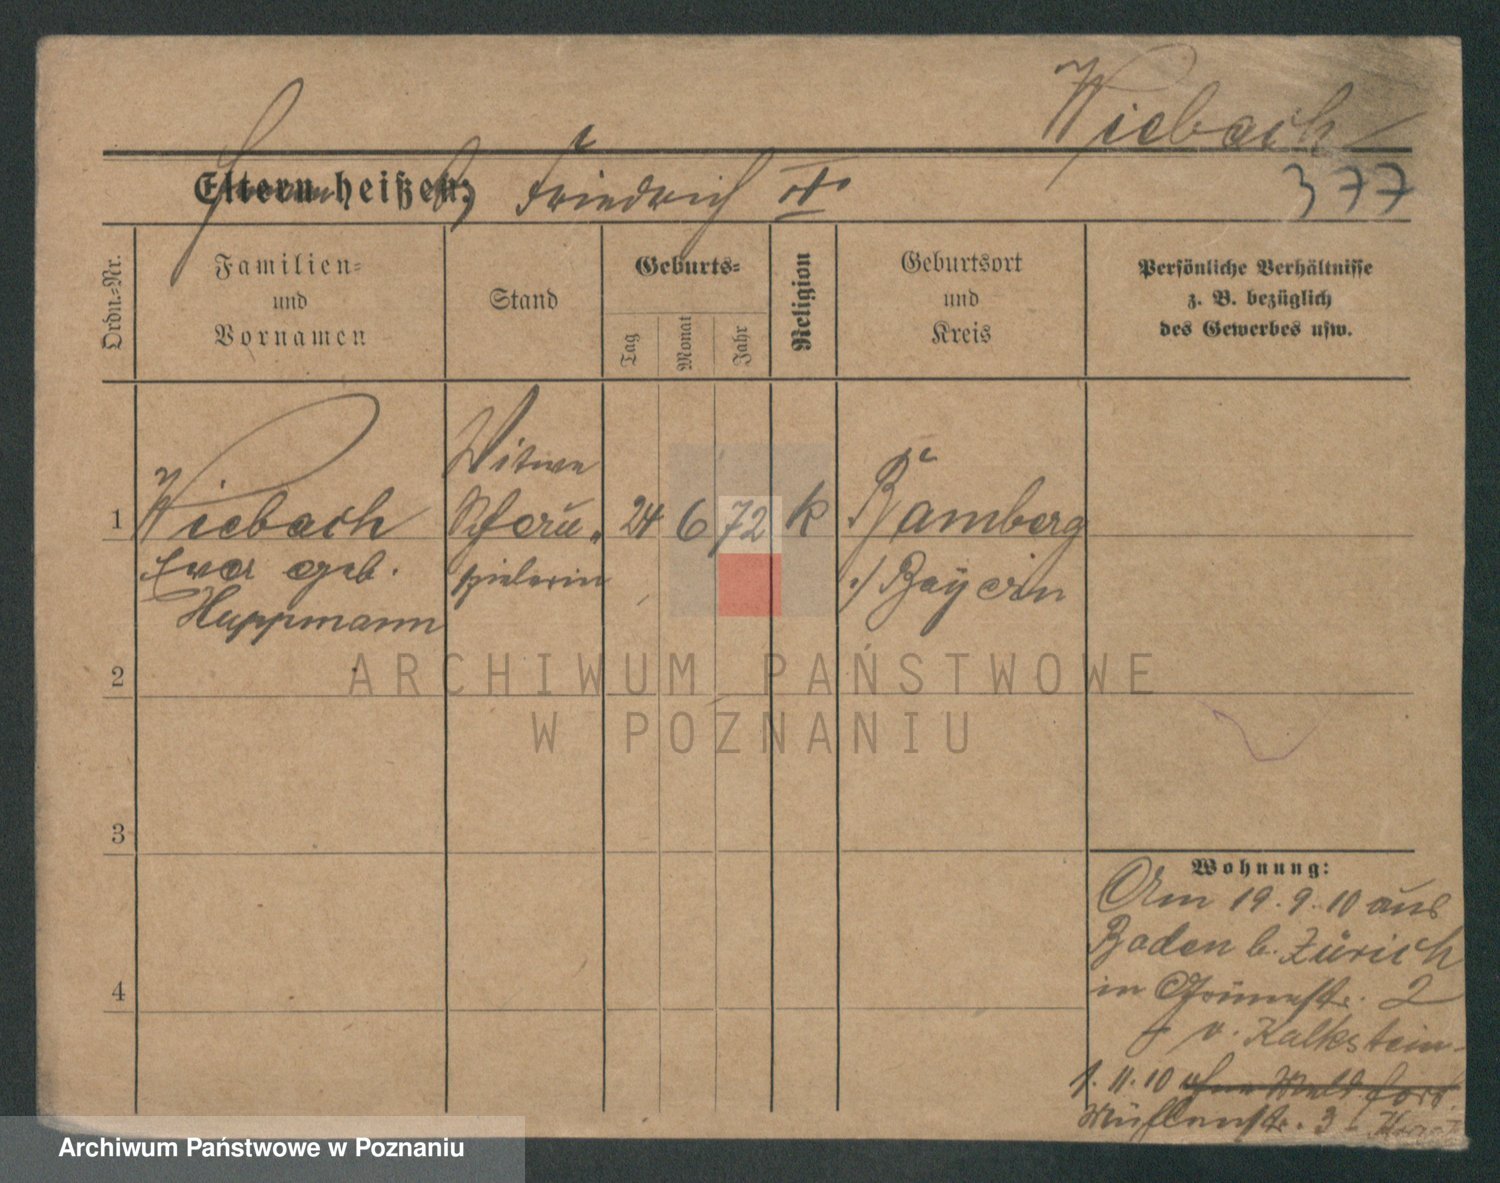 Wiebach
Eltern heißen:
Friedrich
377
Ordn.-Nr.
Familien-
und
Vornamen
Stand
Geburts-
Tag
Monat
Jahr
Religion
Geburtsort
und
Kreis
Persönliche Verhältnisse
z. B. bezüglich
des Gewerbes usw.
1
Wiebach
Eva geb.
Huppmann
Witwe
Schau-
spielerin
24
6
72
k
Bamberg
Bayern
2
3
4
Wohnung:
Am 19.9.10 aus
Baden b. Zürich
in Grünestr. 2
v. Kalkstein
1.11.10 ohne Meld. fort
Mühlenstr. 3
ARCHIWUM PAŃSTWOWE
W POZNANIU
Archiwum Państwowe w Poznaniu